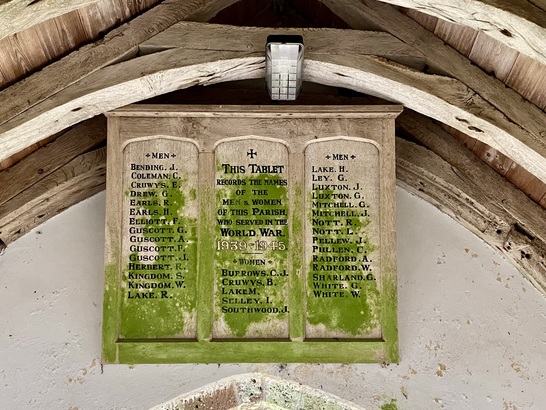 MEN
BENDING, J.
COLEMAN, C.
CRUWYS, E.
DREW, G.
EARLS, R.
EARLS, H.
ELLIOTT, F.
GUSCOTT, G.
GUSCOTT, A.
GUSCOTT, F.
GUSCOTT, J.
HERBERT, R.
KINGDOM, S.
KINGDOM, W.
LAKE, R.
THIS TABLET
RECORDS THE NAMES
OF THE
MEN & WOMEN
OF THIS PARISH
WHO SERVED IN THE
WORLD WAR
1939-1945
WOMEN
BURROWS, C.J.
CRUWYS, B.
LAKE M.
SELLEY, I.
SOUTHWOOD, J.
MEN
LAKE, H.
LEY, G.
LUXTON, J.
LUXTON, G.
MITCHELL, G.
MITCHELL, J.
NOTT, R.
NOTT, L.
PELLEW, J.
PULLEN, C.
RADFORD, A.
RADFORD, W.
SHARLAND, G.
WHITE, G.
WHITE, W.